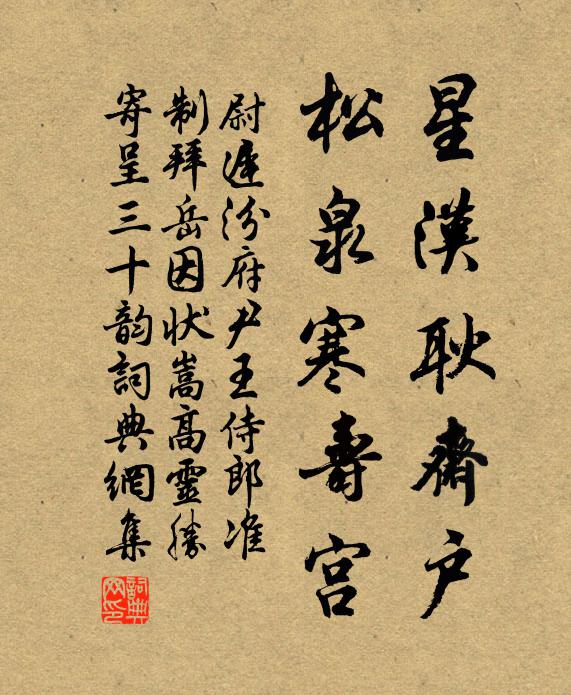 星漢耿齋户
松泉寒壽宫
尉遲汾府尹王侍郎准
制拜岳因状嵩高靈勝
寄呈三十韵詞典網集
詞典网印